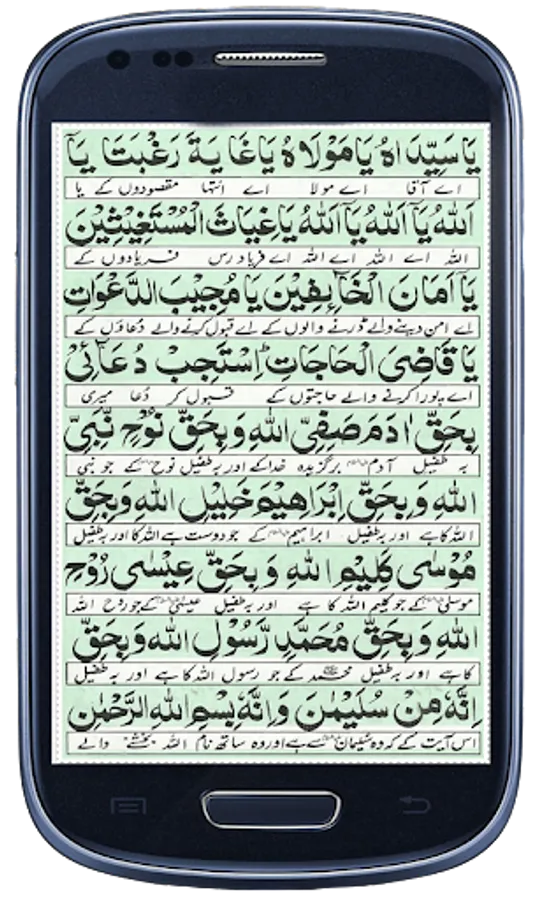 يَا سَيِّدَاهُ يَا مَوْلَاهُ يَا غَايَةَ رَغْبَتَا يَآ
اے آقا اے مولا اے انتہا مقصودوں کے یا
اَللّٰهُ يَآ اَللّٰهُ يَآ اَللّٰهُ يَا غِيَاثَ الْمُسْتَغِيْثِيْنَ
اللہ اے اللہ اے اللہ اے فریاد رس فریادوں کے
يَآ اَمَانَ الْخَآئِفِيْنَ يَا مُجِيْبَ الدَّعَوَاتِ
اے امن دینے والے ڈرنے والوں کے اے قبول کرنے والے دعاؤں کے
يَا قَاضِىَ الْحَاجَاتِ اِسْتَجِبْ دُعَآئِىْ
اے پورا کرنے والے حاجتوں کے قبول کر دُعا میری
بِحَقِّ اٰدَمَ صَفِىِّ اللهِ وَبِحَقِّ نُوْحٍ نَّبِىِّ
بہ طفیل آدم برگزیدہ خدا کے اور بہ طفیل نوح کے جو نبی
اللهِ وَبِحَقِّ اِبْرَاهِيْمَ خَلِيْلِ اللهِ وَبِحَقِّ
اللہ کا ہے اور بہ طفیل ابراہیم کے جو دوست ہے اللہ کا اور بہ طفیل
مُوْسٰى كَلِيْمِ اللهِ وَبِحَقِّ عِيْسٰى رُوْحِ
موسیٰ کے جو کلیم اللہ کا ہے اور بہ طفیل عیسیٰ کے جو روح اللہ
اللهِ وَبِحَقِّ مُحَمَّدٍ رَّسُوْلِ اللهِ وَبِحَقِّ
کا ہے اور بہ طفیل محمد ﷺ کے جو رسول اللہ کا ہے اور بہ طفیل
اِنَّهٗ مِنْ سُلَيْمٰنَ وَاِنَّهٗ بِسْمِ اللهِ الرَّحْمٰنِ
اس آیت کے کہ وہ سلیمان سے ہے اور وہ ساتھ نام اللہ بخشنے والے